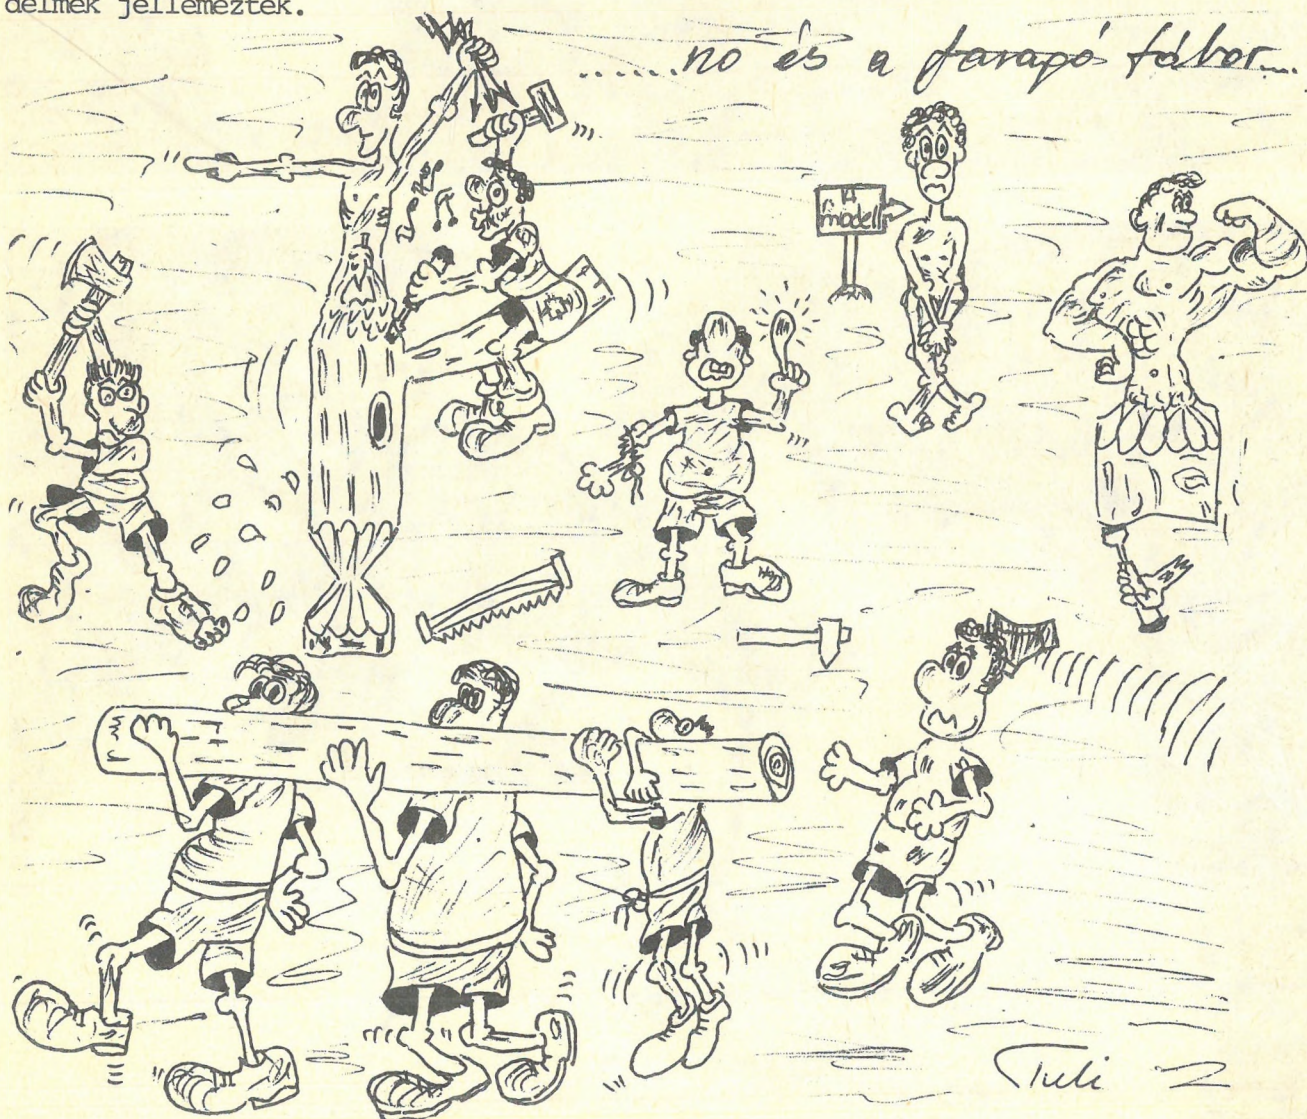 delmek jellemezték.
......no és a faragó tábor...
A
modell
Tuli